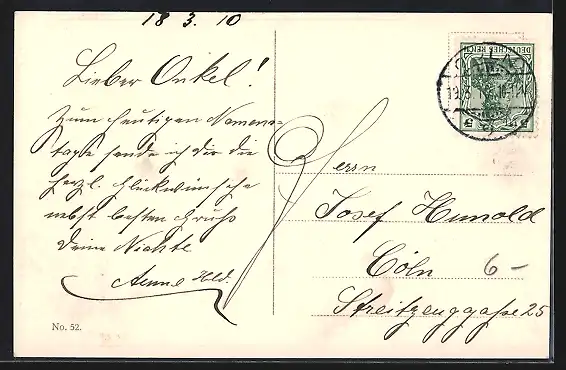 18 3. 10
Lieber Onkel!
Zum heutigen Namens-
tage sende ich dir die
herzl. Glückwünsche
nebst besten Gruß
Deine Nichte
Aenne Hld.
No. 52.
DEUTSCHES REICH
5 5
Herrn
Josef Hunold
Cöln
6-
Streitzeuggasse 25